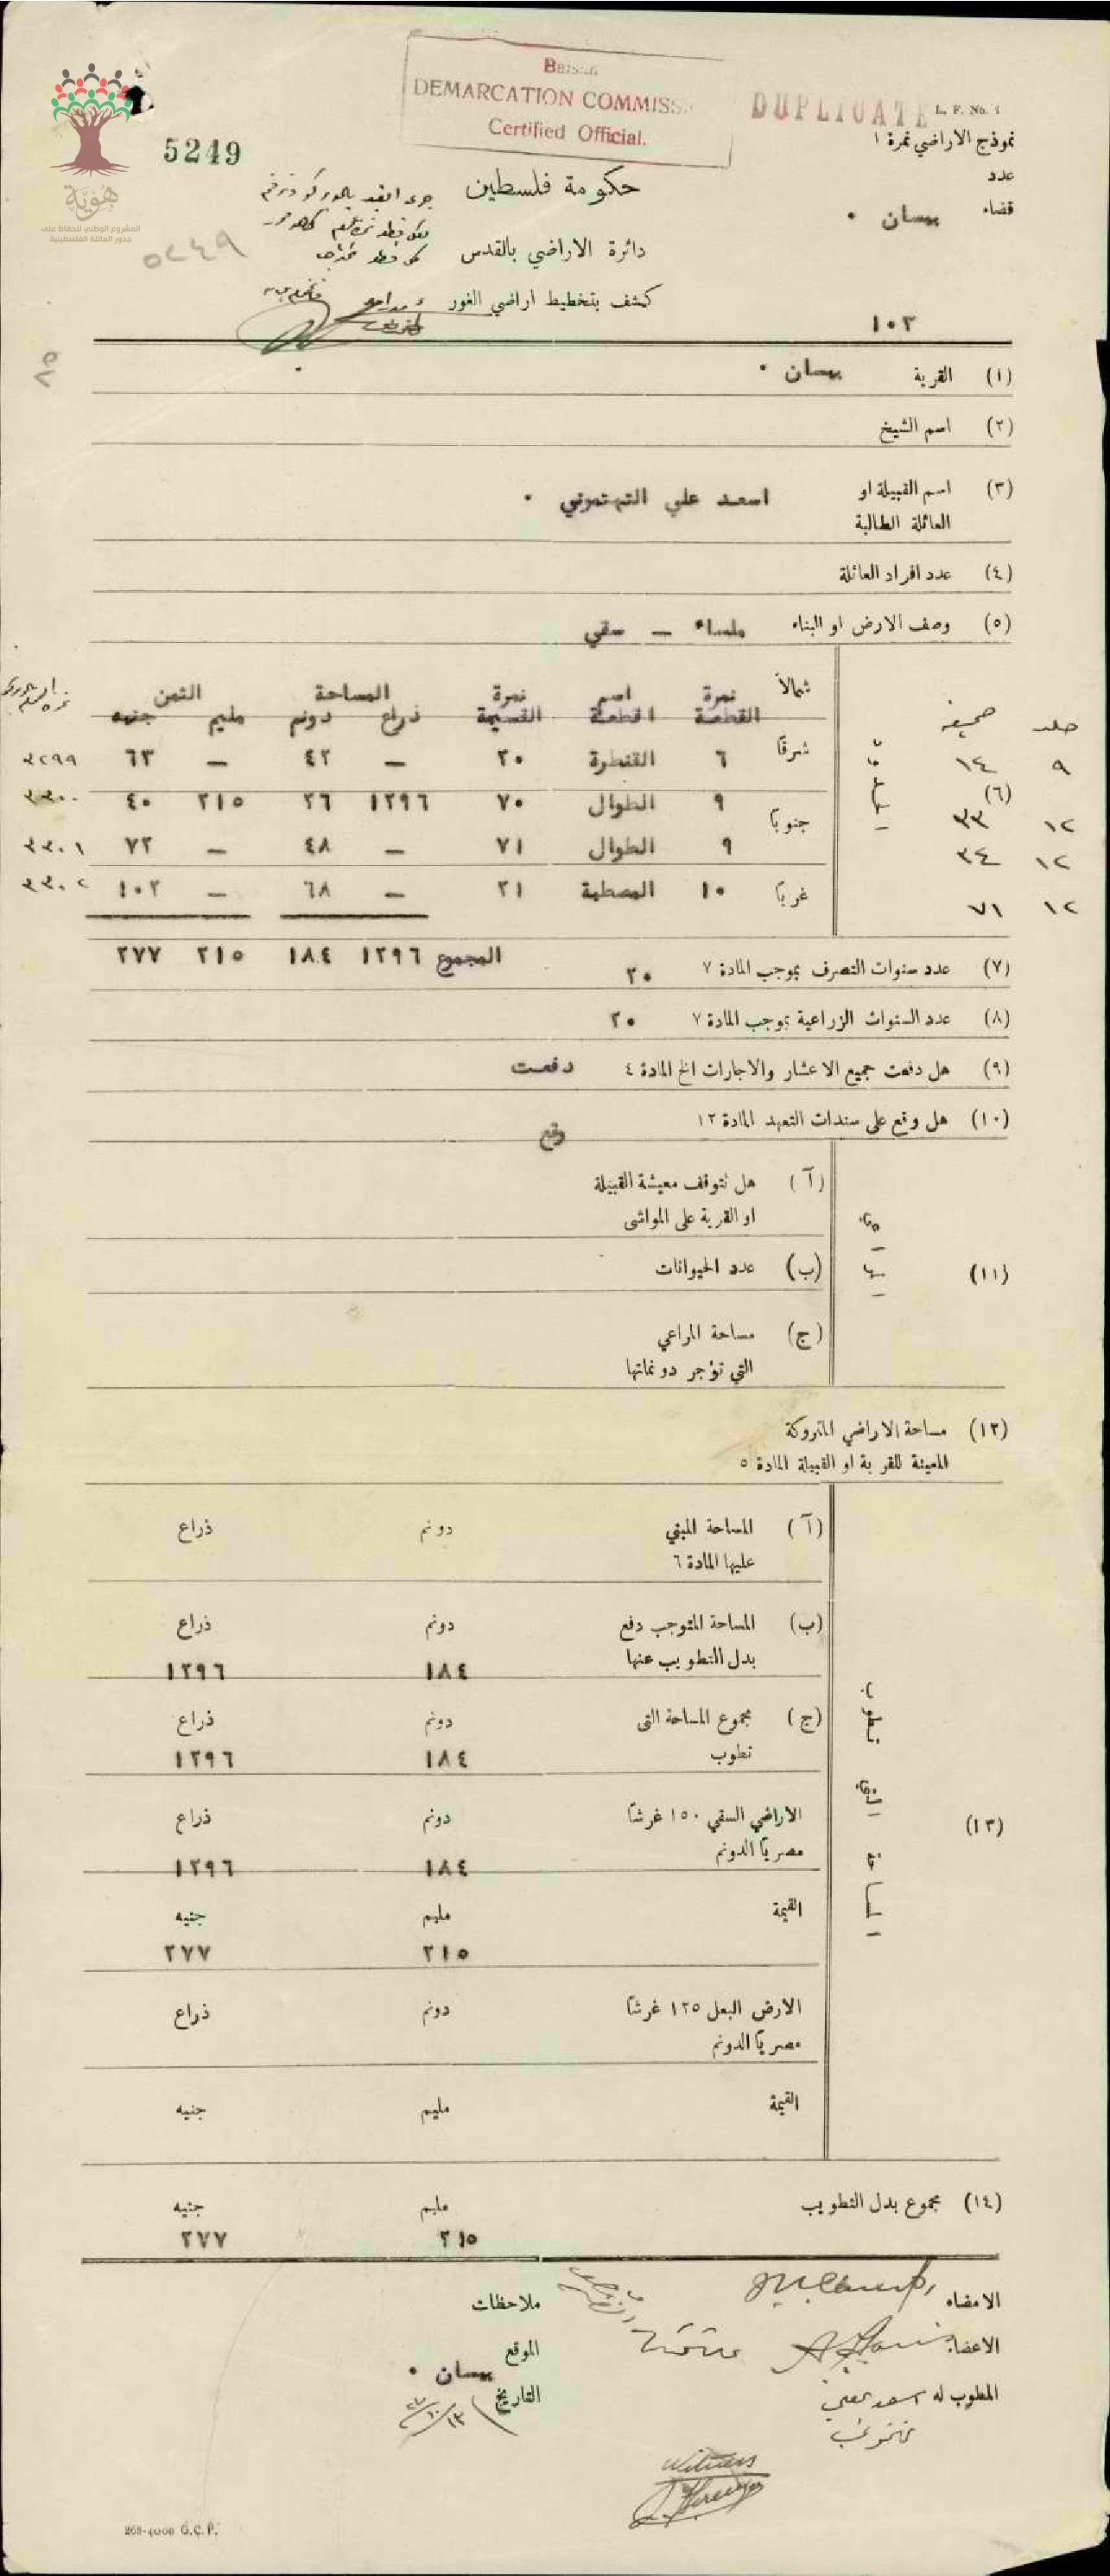 Baisan
DEMARCATION COMMISS
Certified Official.
DUPLICATE
L. F. No. 1
5249
نموذج الاراضي نمرة ١
عدد
قضاء بيسان ٠
هُوِيَّة
المشروع الوطني للحفاظ على
جذور العائلة الفلسطينية
٥٢٤٩
حكومة فلسطين
دائرة الاراضي بالقدس
كشف بتخطيط اراضي الغور
١٠٢
(١) القرية بيسان ٠
(٢) اسم الشيخ
(٣) اسم القبيلة او
العائلة الطالبة
اسعد علي التهتموني ٠
(٤) عدد افراد العائلة
(٥) وصف الارض او البناء ملساء — سقي
جلد صحيفه (٦) شمالاً شرقاً جنوباً غرباً
نمرة القطعة اسم القطعة نمرة القسيمة المساحة ذراع دونم الثمن مليم جنيه
٩ ١٤ ٦ القنطرة ٢٠ — ٤٢ — ٦٣ ٣٢٩٩
١٢ ٣٣ ٩ الطوال ٧٠ ١٢٩٦ ٢٦ ٢١٥ ٤٠ ٣٣٠٠
١٢ ٣٤ ٩ الطوال ٧١ — ٤٨ — ٧٢ ٣٣٠١
١٢ ٧١ ١٠ المصطبة ٢١ — ٦٨ — ١٠٢ ٣٣٠٢
المجموع ١٢٩٦ ١٨٤ ٢١٥ ٢٧٧
(٧) عدد سنوات التصرف بموجب المادة ٧ ٢٠
(٨) عدد السنوات الزراعية بموجب المادة ٧ ٢٠
(٩) هل دفعت جميع الاعشار والاجارات الخ المادة ٤ دفعت
(١٠) هل وقع على سندات التعهد المادة ١٢ وقع
(١١)
(آ) هل تتوقف معيشة القبيلة
او القرية على المواشى
(ب) عدد الحيوانات
(ج) مساحة المراعي
التي تؤجر دونماتها
(١٢) مساحة الاراضي المتروكة
المعينة للقرية او القبيلة المادة ٥
(١٣)
(آ) المساحة المبني دونم ذراع
عليها المادة ٦
(ب) المساحة المتوجب دفع دونم ذراع
بدل التطويب عنها ١٨٤ ١٢٩٦
(ج) مجموع المساحة التى دونم ذراع
تطوب ١٨٤ ١٢٩٦
الاراضي السقي ١٥٠ غرشاً دونم ذراع
مصرياً الدونم ١٨٤ ١٢٩٦
القيمة مليم جنيه
٢١٥ ٢٧٧
الارض البعل ١٢٥ غرشاً دونم ذراع
مصرياً الدونم
القيمة مليم جنيه
(١٤) مجموع بدل التطويب مليم جنيه
٢١٥ ٢٧٧
الامضاء
ملاحظات
الاعضاء
الموقع بيسان ٠
المطوب له
التاريخ
Witness
268-4000 G.C.P.